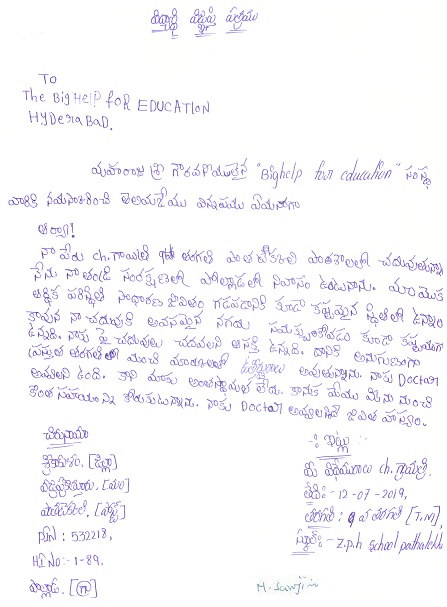 విద్యార్థి విజ్ఞప్తి పత్రము
TO
The BigHelp foR EDUCATION
HYDeraBaD.
మహారాజ శ్రీ గౌరవనీయులైన "Bighelp for education" సంస్థ
వారికి నమస్కరించి తెలియజేయు విన్నపము ఏమనగా
అర్యా!
నా పేరు ch. గాయత్రి తరగతి లో చదువుతున్నా
నేను నా తండ్రి సంరక్షణలో పోల్నాడలో నివాసం ఉంటున్నాను. మా యొక్క
ఆర్థిక పరిస్థితి సాధారణ జీవితం గడపడానికి కూడా కష్టమైన స్థితిలో ఉన్నాం
కావున నా చదువుకి అవసమైన నగదు సమకూర్చుకోవడం కూడా కష్టముగా
ఉన్నది. నాకు పై చదువులు చదవలని ఆసక్తి ఉన్నది. దానికి అనుగుణంగా
ప్రస్తుత తరగతిలో మంచి మార్కులతో ఉత్తీర్ణురాలు అవుతున్నాను. నాకు DOCTOR
అవ్వాలని ఉంది. కాని మాకు అంతస్థోమత లేదు. కానుక మేము మీ నుంచి
కొంత సహాయంన్ని కోరుకుంటున్నాను. నాకు DOCTOR అవ్వాలన్నదే జీవిత
చిరునామా
శ్రీకాకుళం, [జిల్లా]
[మం]
[పోస్ట్]
PIN : 532218,
H.NO:- 1-89.
[గ్రా]
-: ఇట్లు :-
మీ విధేయురాలు ch. గాయత్రి.
తేది:- 12-07-2019,
తరగతి: 9 వ తరగతి [T.M]
స్కూల్:- z.p.h school